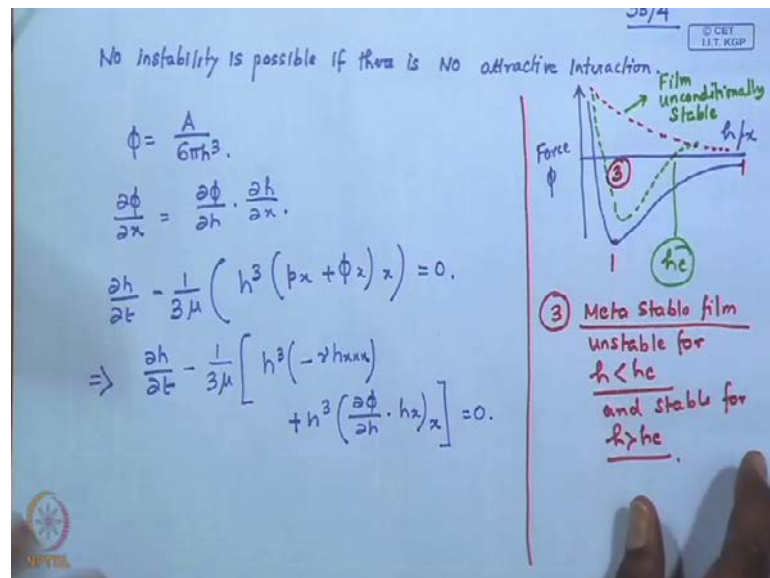 35/4
© CET
I.I.T. KGP
No instability is possible if there is No attractive Interaction.
ϕ = A / 6πh³.
∂ϕ/∂x = ∂ϕ/∂h · ∂h/∂x.
∂h/∂t - 1/3μ ( h³ (px + ϕx) x ) = 0.
⇒ ∂h/∂t - 1/3μ [ h³ (-γhxxx)
+ h³ (∂ϕ/∂h · hx)x ] = 0.
Film
unconditionally
Stable
h/x
Force
ϕ
③
1
1
hc
③ Meta Stable film
unstable for
h < hc
and stable for
h > hc.
NPTEL